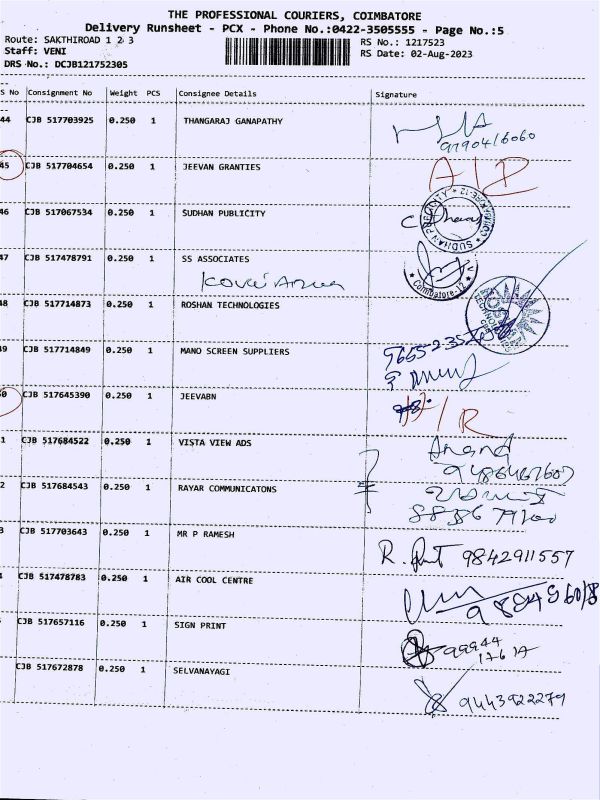 THE PROFESSIONAL COURIERS, COIMBATORE
Delivery Runsheet - PCX - Phone No.:0422-3505555 - Page No.:5
Route: SAKTHIROAD 1 2 3 RS No.: 1217523
Staff: VENI RS Date: 02-Aug-2023
DRS No.: DCJB121752305
S No Consignment No Weight PCS Consignee Details Signature
44 CJB 517703925 0.250 1 THANGARAJ GANAPATHY
45 CJB 517704654 0.250 1 JEEVAN GRANTIES
46 CJB 517067534 0.250 1 SUDHAN PUBLICITY
47 CJB 517478791 0.250 1 SS ASSOCIATES
Coimbatore-12
48 CJB 517714873 0.250 1 ROSHAN TECHNOLOGIES
49 CJB 517714849 0.250 1 MANO SCREEN SUPPLIERS
0 CJB 517645390 0.250 1 JEEVABN
1 CJB 517684522 0.250 1 VISTA VIEW ADS Anand
9486467607
2 CJB 517684543 0.250 1 RAYAR COMMUNICATONS
3 CJB 517703643 0.250 1 MR P RAMESH R. 9842911557
CJB 517478783 0.250 1 AIR COOL CENTRE
CJB 517657116 0.250 1 SIGN PRINT 99944
17617
CJB 517672878 0.250 1 SELVANAYAGI 9443922279